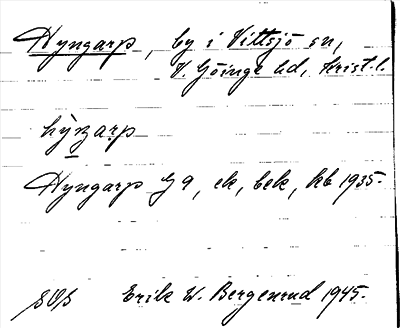 Hyngarp, by i Vittsjö sn,
V. Göinge hd, Krist. l.
hỳŋarp
Hyngarp G 9, ek, bek, kb 1935.
Erik W. Bergenrud 1945.